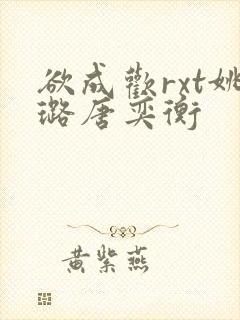 欲成歡rxt姚
璐唐奕衡
黄紫燕